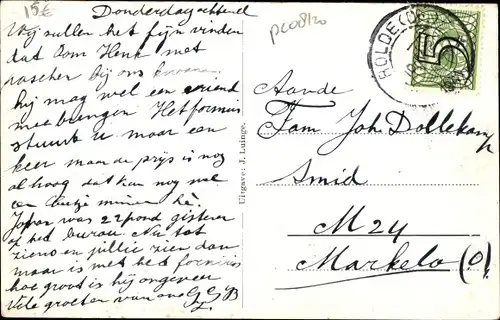 15€
pc08120
Donderdagachtend
Wij zullen het fijn vinden
dat Oom Henk met
paschen bij ons kwam
hij mag wel een vriend
meebrengen Het fornuis
stuurt u maar een
keer maar de prijs is nog
al hoog dat kan nog wel
een beetje minder hè.
Jopar was 22 pond gisteren
op het bureau. Nu tot
ziens en jullie zien dan
maar is met het fornuis
hoe groot is hij ongeveer
Vele groeten van ons
Uitgave: J. Luinge.
ROLDE (DR.)
5
Aan de
Fam Joh Dollekamp
Smid
M 24
Markelo (O)